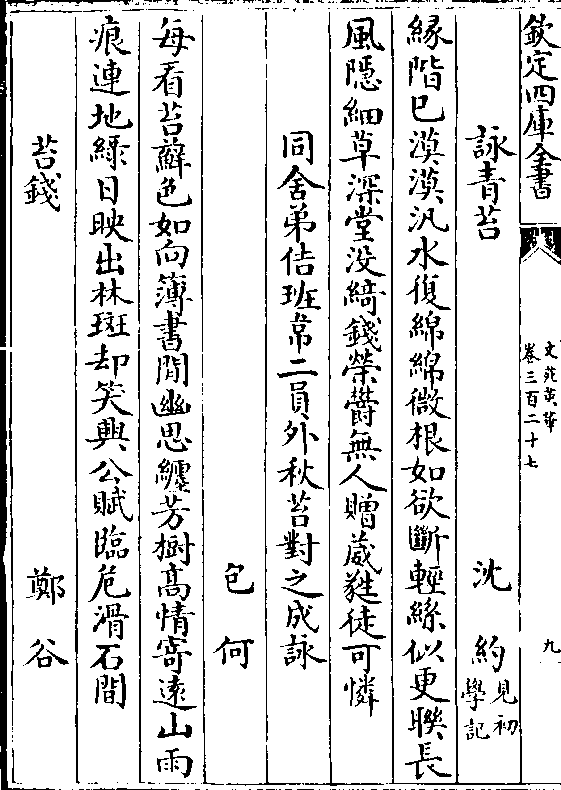 欽定四庫全書
文苑英華
卷三百二十七
九
詠青苔 沈約見初學記
緣階已漠漠汎水復綿綿微根如欲斷輕絲似更聮長
風隱細草深堂没綺錢縈鬱無人贈葳蕤徒可憐
同舍弟佶班韋二員外秋苔對之成詠
包何
每看苔蘚色如向簿書閒幽思纏芳樹髙情寄逺山雨
痕連地緑日映出林斑却笑興公賦臨危滑石間
苔錢 鄭谷